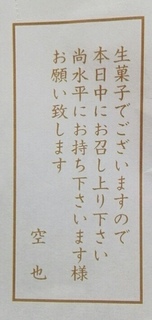 生菓子でございますので
本日中にお召し上り下さい
尚水平にお持ち下さいます様
お願い致します
空也